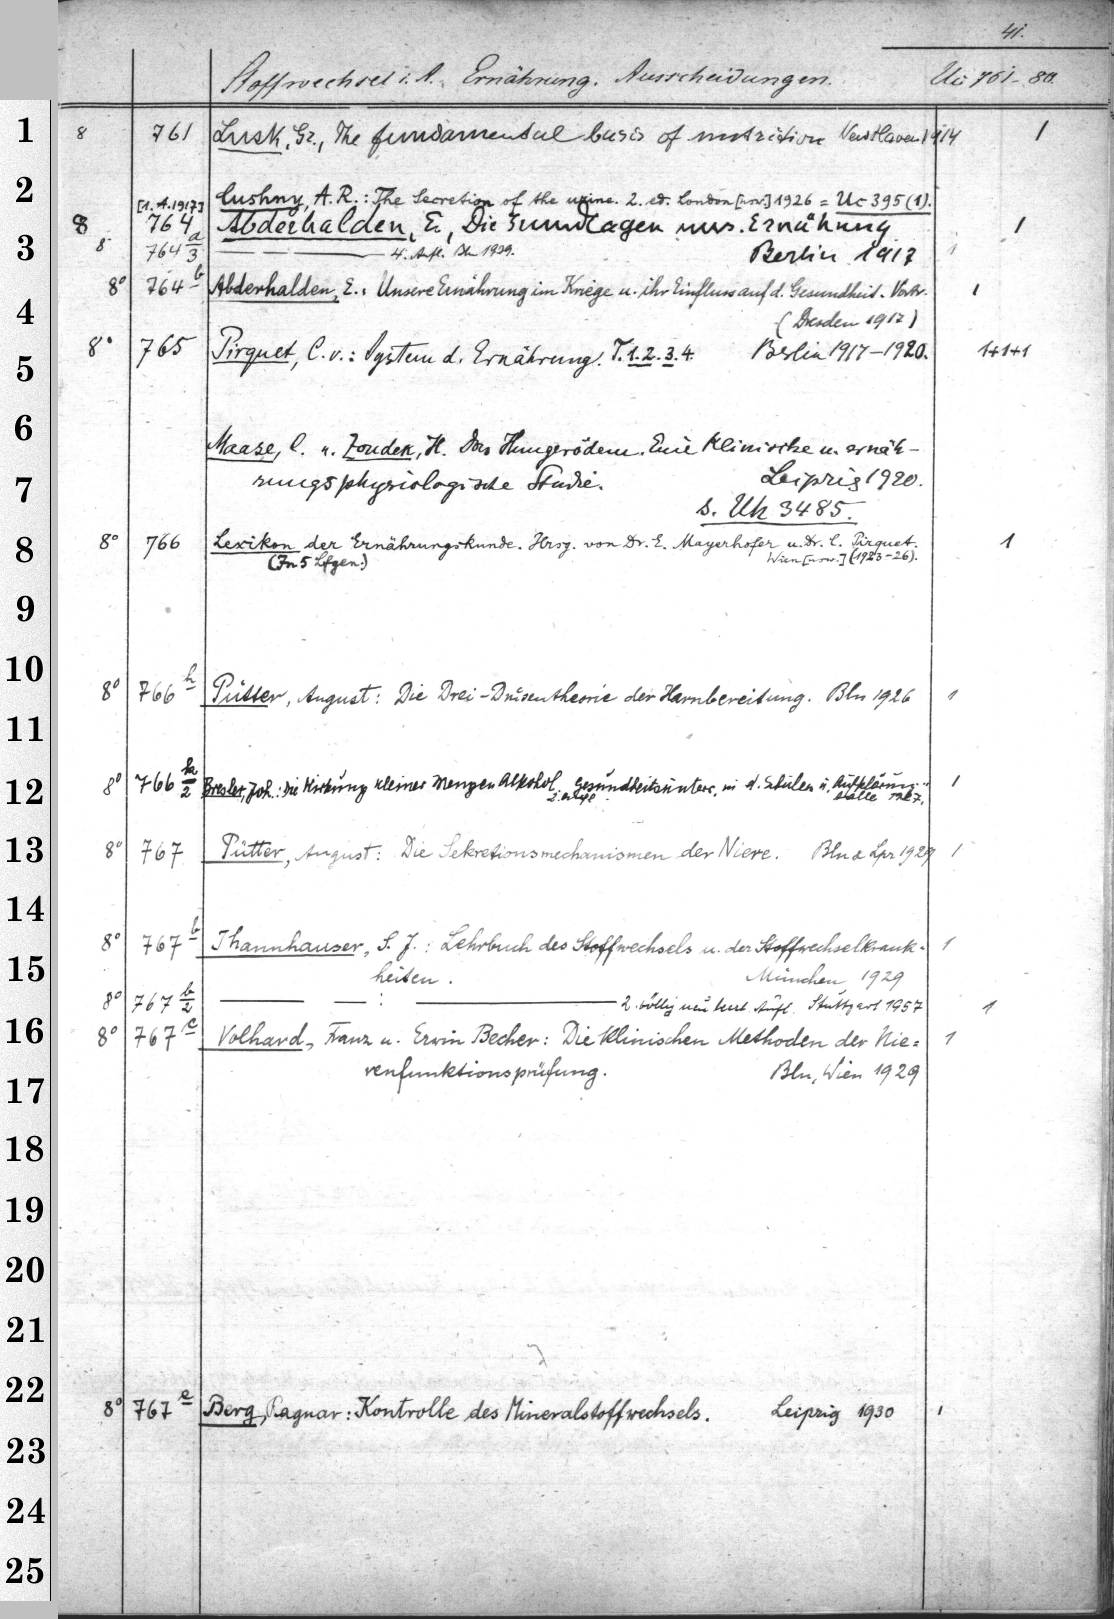 41.
Stoffwechsel i. A. Ernährung. Ausscheidungen. Uc 761-80.
1 8 761 Lusk, Gr., The fundamental basis of nutrition New Haven 1914 1
2 Cushny, A. R.: The Secretion of the urine. 2. ed. London [usw.] 1926 = Uc 395 (1).
[1. A. 1917]
8 764 Abderhalden, E., Die Grundlagen uns. Ernährung 1
3 8° 764 a/3 — — 4. Aufl. Bln 1939. Berlin 1917 1
8° 764 b Abderhalden, E.: Unsere Ernährung im Kriege u. ihr Einfluss auf d. Gesundheit. Vortr. 1
4 (Dresden 1917)
5 8° 765 Pirquet, C. v.: System d. Ernährung. T. 1. 2. 3. 4. Berlin 1917-1920. 1+1+1
6
Maase, C. u. Zondek, H. Das Hungerödem. Eine klinische u. ernäh-
7 rungsphysiologische Studie. Leipzig 1920.
s. Uk 3485.
8 8° 766 Lexikon der Ernährungskunde. Hrsg. von Dr. E. Mayerhofer u. Dr. C. Pirquet. 1
(In 5 Lfgen.) Wien [usw.] (1923-26).
9
10 8° 766 h Pütter, August: Die Drei-Drüsentheorie der Harnbereitung. Bln 1926 1
11
12 8° 766 ha/2 Bresler, Joh.: Die Wirkung kleiner Mengen Alkohol. Gesundheitsunterr. in d. Schulen u. Aufklärung.
Halle 1927. 1
13 8° 767 Pütter, August: Die Sekretionsmechanismen der Niere. Bln & Lpz 1929 1
14
8° 767 b Thannhauser, S. J.: Lehrbuch des Stoffwechsels u. der Stoffwechselkrank- 1
15 heiten. München 1929
8° 767 b/2 — — : — 2. völlig neu bearb. Aufl. Stuttgart 1957 1
16 8° 767 c Volhard, Franz u. Erwin Becher: Die klinischen Methoden der Nie= 1
17 renfunktionsprüfung. Bln, Wien 1929
18
19
20
21
22 8° 767 e Berg, Ragnar: Kontrolle des Mineralstoffwechsels. Leipzig 1930 1
23
24
25